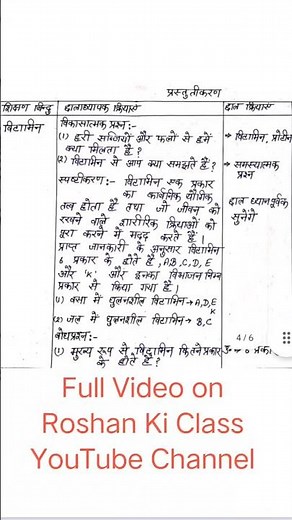 प्रस्तुतीकरण
शिक्षण बिन्दु छात्राध्यापक क्रियाएं छात्र क्रियाएं
विटामिन विकासात्मक प्रश्न:-
(1) हरी सब्जियों और फलों से हमें → विटामिन, प्रोटीन
क्या मिलता है?
(2) विटामिन से आप क्या समझते हैं? → समस्यात्मक
प्रश्न
स्पष्टीकरण:- विटामिन एक प्रकार
का कार्बनिक यौगिक
तत्व होता है तथा जो जीवन को छात्र ध्यानपूर्वक
रखने वाले शारीरिक क्रियाओं को सुनेंगे
पूरा करने में मदद करते हैं।
प्राप्त जानकारी के अनुसार विटामिन
6 प्रकार के होते हैं, A,B,C,D,E
और 'K' और इनका विभाजन निम्न
प्रकार से किया गया है।
(1) वसा में घुलनशील विटामिन → A,D,E
K
(2) जल में घुलनशील विटामिन → B,C
बोधप्रश्न:- 4/6
(1) मुख्य रूप से विटामिन कितने प्रकार
के होते हैं?
Full Video on
Roshan Ki Class
YouTube Channel